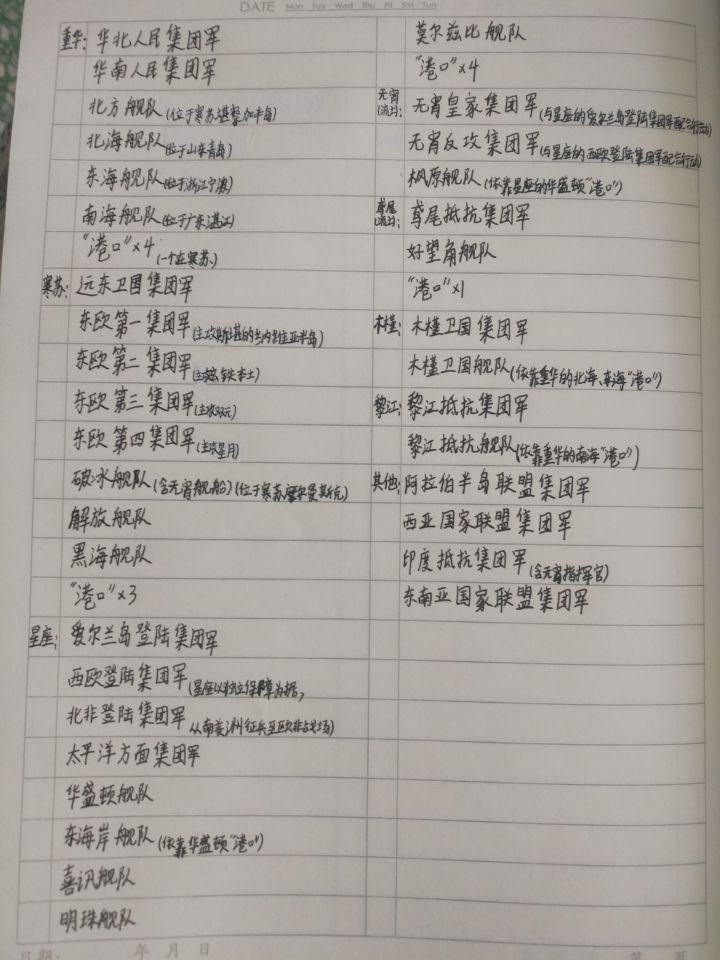 DATE Mon Tue Wed Thu Fri Sat Sun
重华: 华北人民集团军
华南人民集团军
北方舰队(位于寒苏堪察加半岛)
北海舰队(位于山东青岛)
东海舰队(位于浙江宁波)
南海舰队(位于广东湛江)
"港口"×4(一个在寒苏)
寒苏: 远东卫国集团军
东欧第一集团军(主攻斯堪的纳维亚半岛)
东欧第二集团军(主攻铁本土)
东欧第三集团军(主攻双元)
东欧第四集团军(主攻星月)
破冰舰队(含无宵舰船)(位于寒苏摩尔曼斯克)
解放舰队
黑海舰队
"港口"×3
星座: 爱尔兰岛登陆集团军
西欧登陆集团军(星座以独立保障为据,
北非登陆集团军 从南美洲征兵至欧非战场)
太平洋方面集团军
华盛顿舰队
东海岸舰队(依靠华盛顿"港口")
喜讯舰队
明珠舰队
日期: 年 月 日
莫尔兹比舰队
"港口"×4
无宵(流亡): 无宵皇家集团军(与星座的爱尔兰岛登陆集团军配合行动)
无宵反攻集团军(与星座的西欧登陆集团军配合行动)
枫原舰队(依靠星座的华盛顿"港口")
鸢尾(流亡): 鸢尾抵抗集团军
好望角舰队
"港口"×1
木槿: 木槿卫国集团军
木槿卫国舰队(依靠重华的北海、东海"港口")
黎江: 黎江抵抗集团军
黎江抵抗舰队(依靠重华的南海"港口")
其他: 阿拉伯半岛联盟集团军
西亚国家联盟集团军
印度抵抗集团军(含无宵指挥官)
东南亚国家联盟集团军
第 页